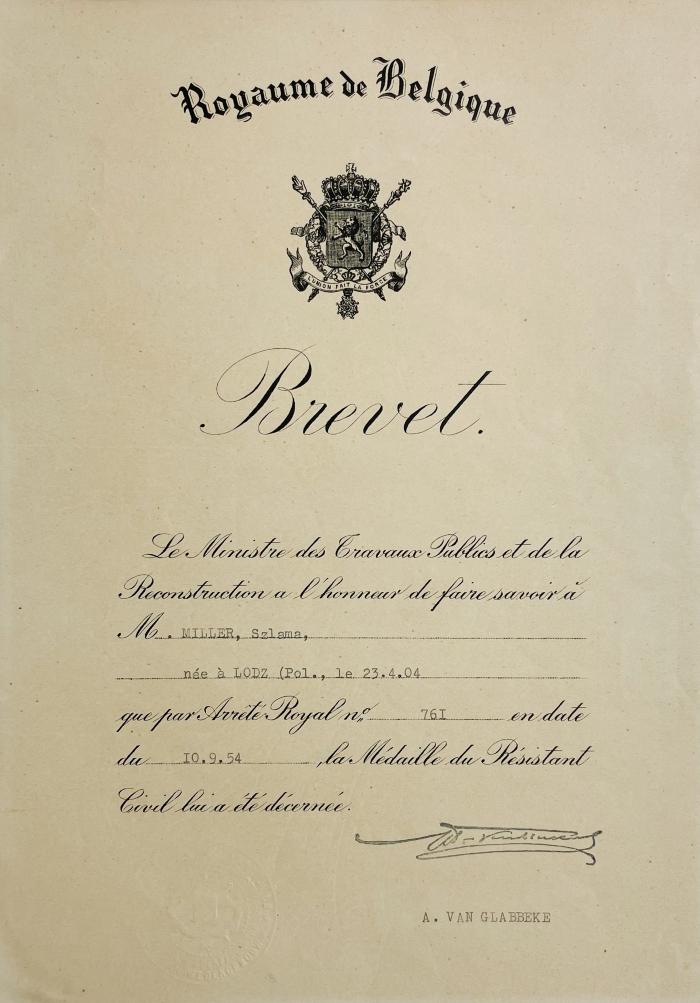 Royaume de Belgique
L'UNION FAIT LA FORCE
Brevet.
Le Ministre des Travaux Publics et de la
Reconstruction a l'honneur de faire savoir à
M. MILLER, Szlama,
née à LODZ (Pol., le 23.4.04
que par Arrêté Royal nº 76I en date
du I0.9.54 , la Médaille du Résistant
Civil lui a été décernée.
A. VAN GLABBEKE